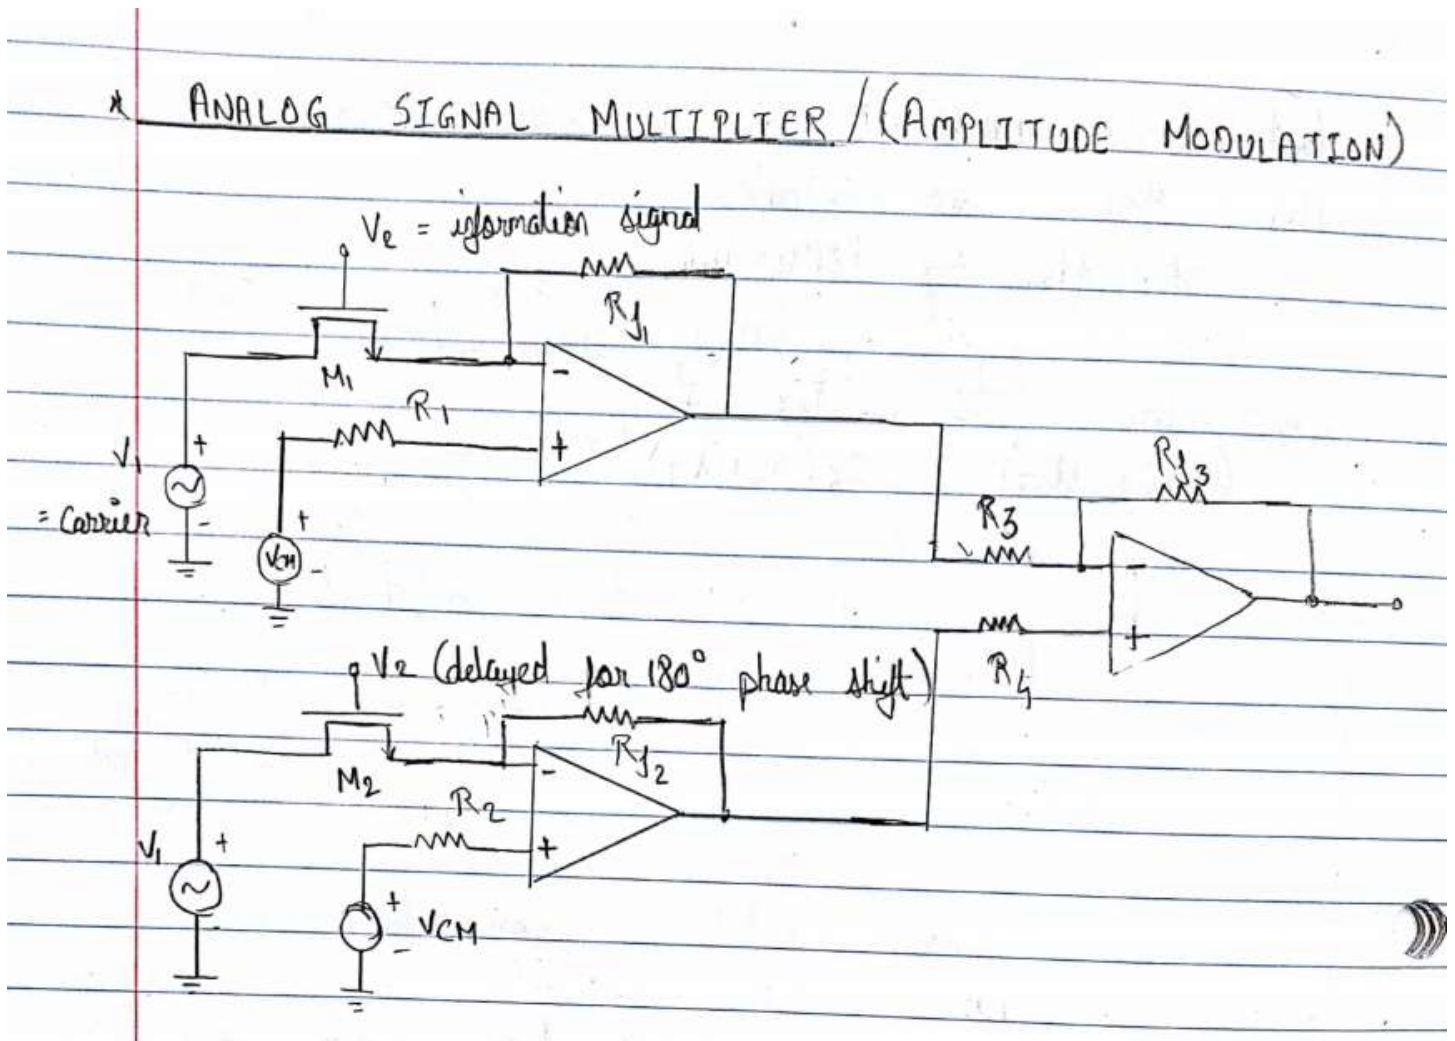 * ANALOG SIGNAL MULTIPLIER / (AMPLITUDE MODULATION)
V2 = information signal
Rf1
M1
R1
V1
+
-
= Carrier
VCM
+
-
-
+
Rf3
R3
-
+
R4
V2 (delayed for 180° phase shift)
Rf2
M2
R2
-
+
V1
+
-
+
-
VCM